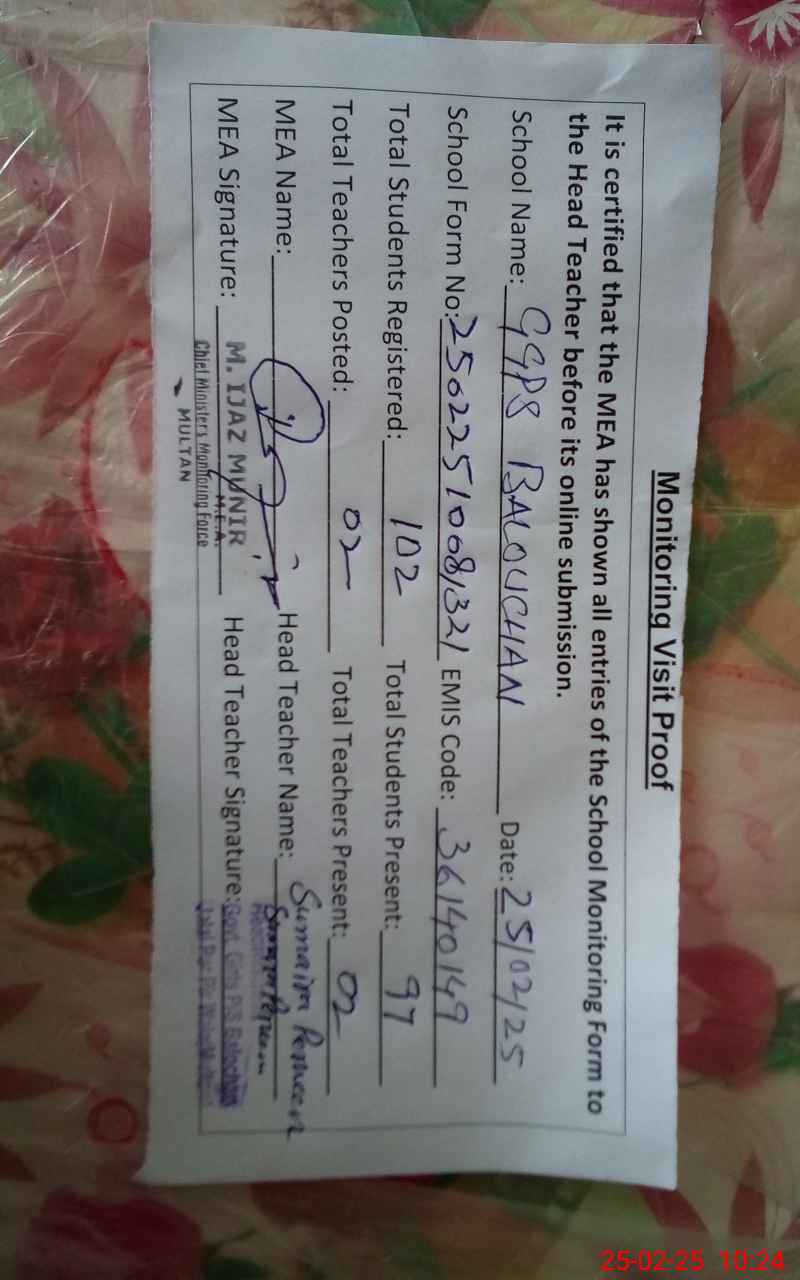 Monitoring Visit Proof
It is certified that the MEA has shown all entries of the School Monitoring Form to
the Head Teacher before its online submission.
School Name: GGPS BALOUCHAN Date: 25/02/25
School Form No: 2502251068/321 EMIS Code: 36140149
Total Students Registered: 102 Total Students Present: 97
Total Teachers Posted: 02 Total Teachers Present: 02
MEA Name: Head Teacher Name: Sumaira Perveen
MEA Signature: M. IJAZ MUNIR Head Teacher Signature: Sumaira Perveen
M.E.A.
Chief Minister's Monitoring Force
MULTAN
Govt. Girls P/S Balochan
25-02-25 10:24